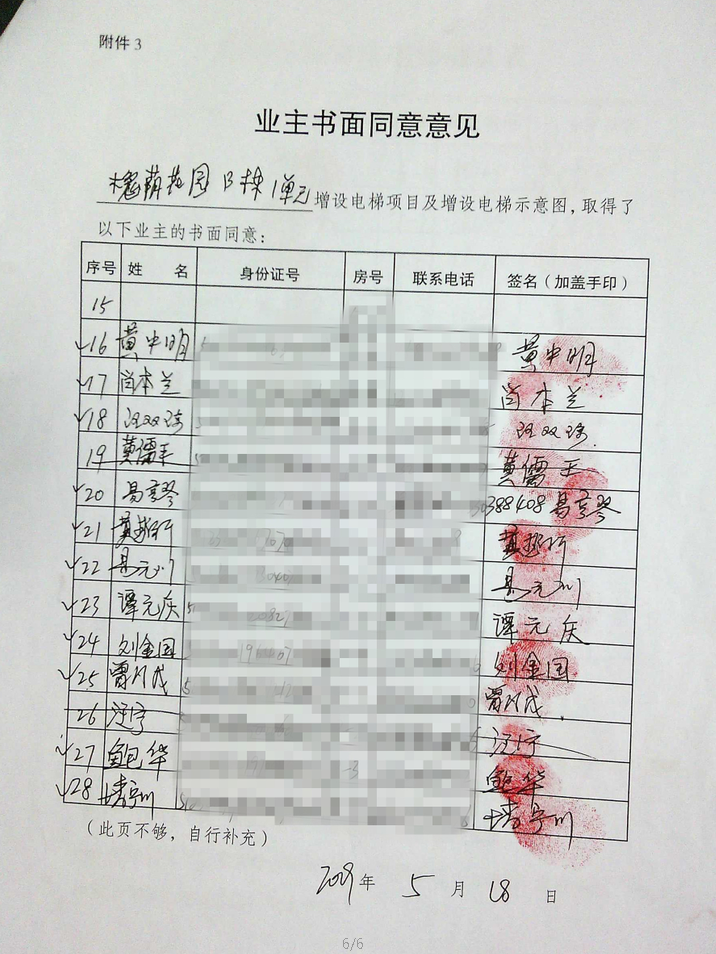 附件3
业主书面同意意见
槐荫花园B栋1单元增设电梯项目及增设电梯示意图，取得了
以下业主的书面同意：
序号 姓 名 身份证号 房号 联系电话 签名（加盖手印）
15
√16 黄中明 黄中明
√17 肖本兰 肖本兰
√18 汪双珍 汪双珍
19 黄儒玉 黄儒玉
√20 易彦琴 388408 易彦琴
√21 黄 黄
√22 元川 元川
√23 谭元庆 谭元庆
√24 刘金国 刘金国
√25 曾 成 曾 成
26 汪宁 汪宁
√27 鲍华 鲍华
√28
（此页不够，自行补充）
2019年 5月 18日
6/6